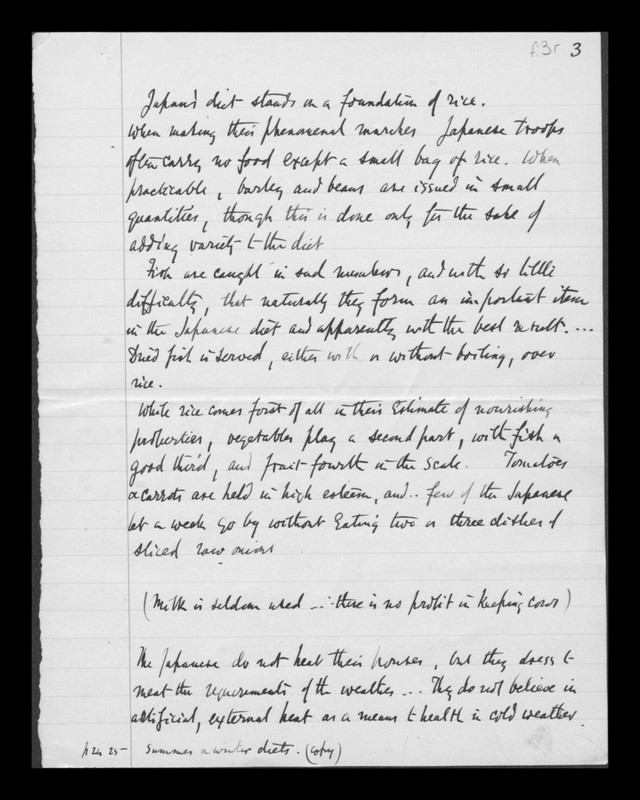 f.3r 3
Japan's diet stands on a foundation of rice.
When making their phenomenal marches Japanese troops
often carry no food except a small bag of rice. When
practicable, barley and beans are issued in small
quantities, though this is done only for the sake of
adding variety to the diet
Fish are caught in such numbers, and with so little
difficulty, that naturally they form an important item
in the Japanese diet and apparently with the best result. ...
Dried fish is served, either with or without boiling, over
rice.
While rice comes first of all in their estimate of nourishing
properties, vegetables play a second part, with fish a
good third, and fruit fourth in the scale. Tomatoes
& carrots are held in high esteem, and .. few of the Japanese
let a week go by without eating two or three dishes of
sliced raw onions
(Milk is seldom used ... there is no profit in keeping cows)
The Japanese do not heat their houses, but they dress to
meet the requirements of the weather ... They do not believe in
artificial, external heat as a means to health in cold weather.
p 24 25 - Summer & winter diets. (copy)